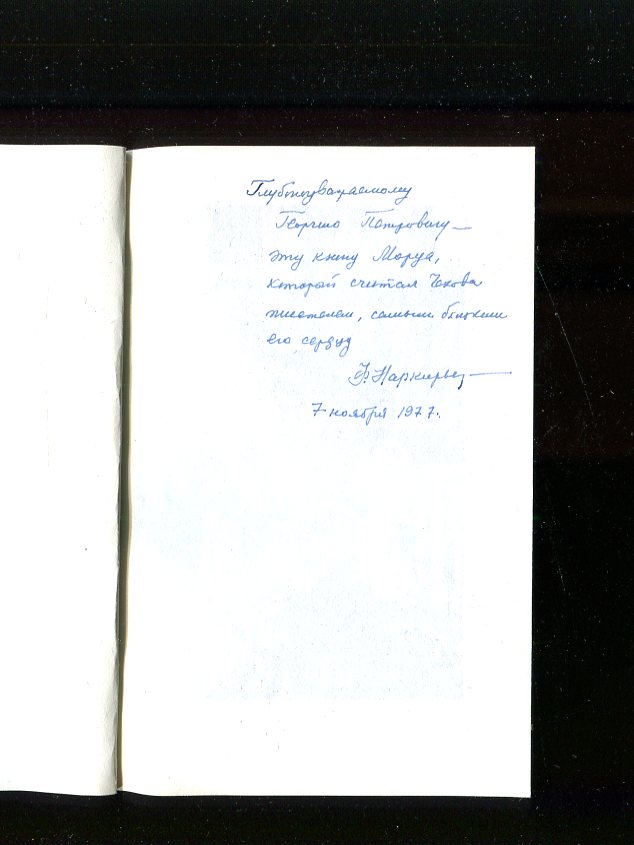 Глубокоуважаемому
Георгию Петровичу —
эту книгу Моруа,
который считал Чехова
писателем, самым близким
его сердцу
Ф. Наркирьер —
7 ноября 1977.